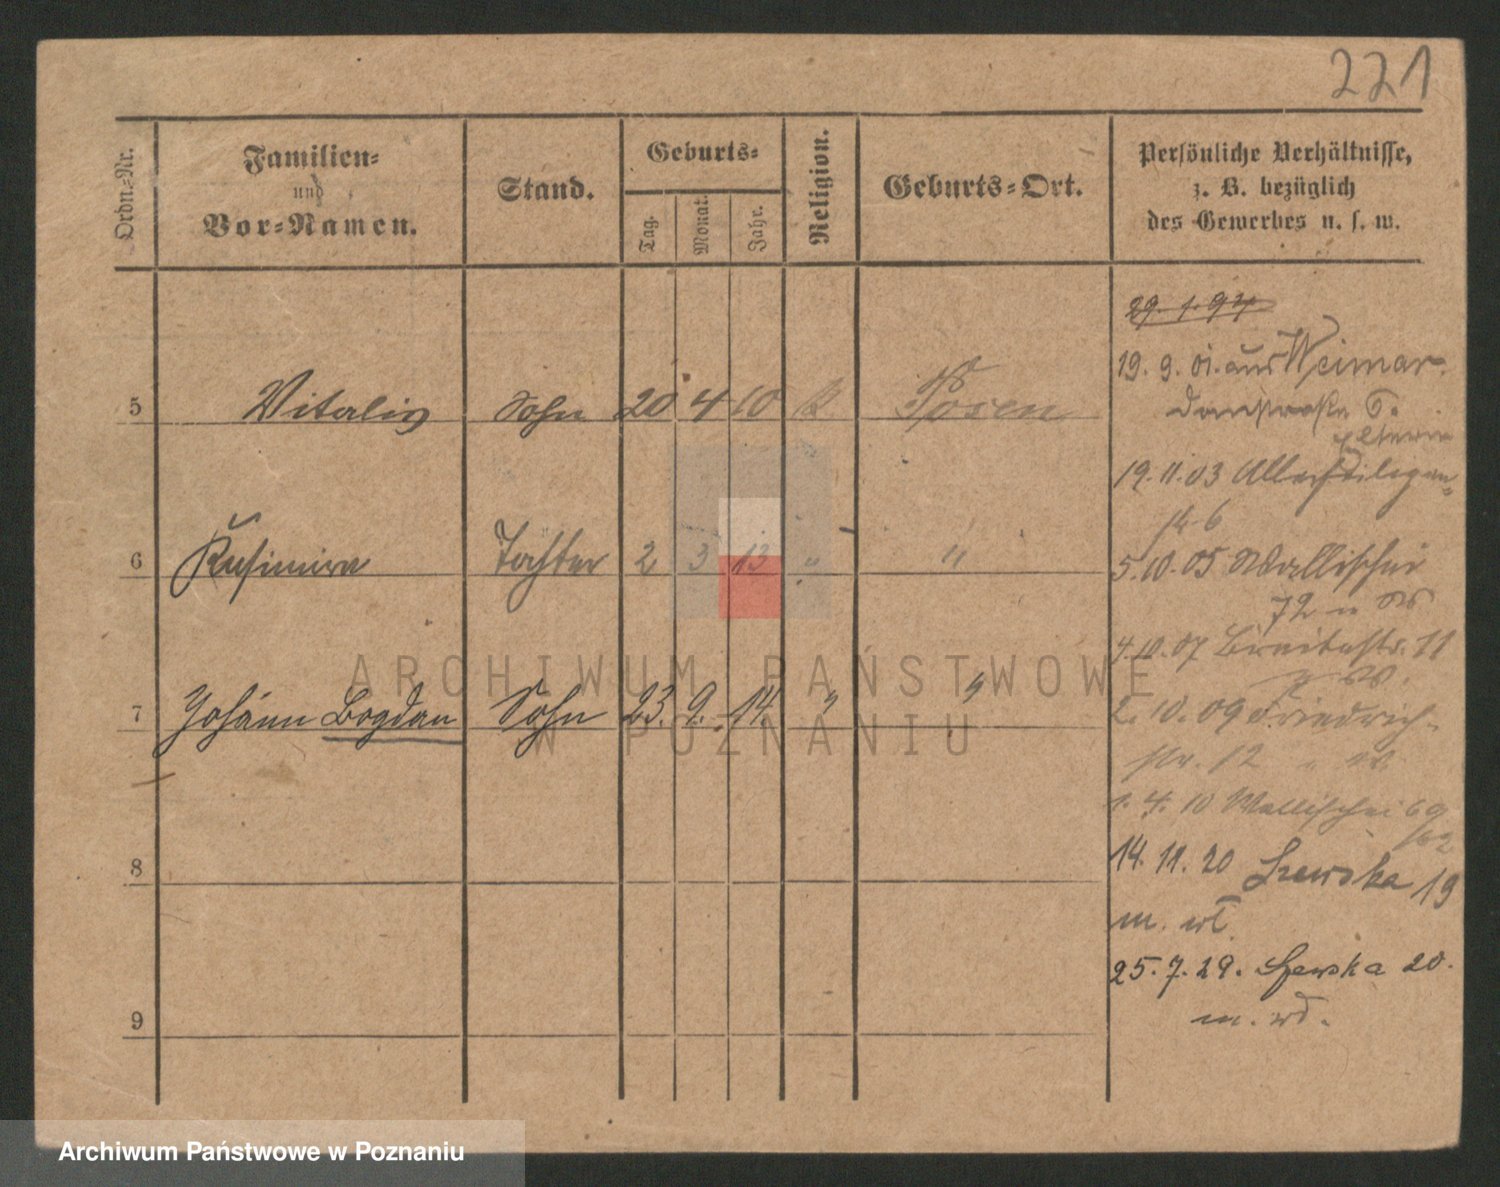 221
Ordn.-Nr.
Familien-
und
Vor-Namen.
Stand.
Geburts-
Tag.
Monat.
Jahr.
Religion.
Geburts-Ort.
Persönliche Verhältnisse,
z. B. bezüglich
des Gewerbes u. s. w.
29. 1. 94.
19. 9. 01. aus Weimar.
5 Vitalis Sohn 20 4 10 k. Posen
Domstraße 6.
Eltern
19. 11. 03
6
6 Kasimira Tochter 2 3 13 " "
5. 10. 05 Wallischei
72
4. 10. 07 Breitestr. 11
7 Johann Bogdan Sohn 23. 9. 14. " "
2. 10. 09 Friedrich-
str. 12
1. 4. 10 Wallischei 69
8
14. 11. 20 Szewska 19
m. wł.
25. 7. 29. Szewska 20.
9
m. wł.
ARCHIWUM PAŃSTWOWE
W POZNANIU
Archiwum Państwowe w Poznaniu